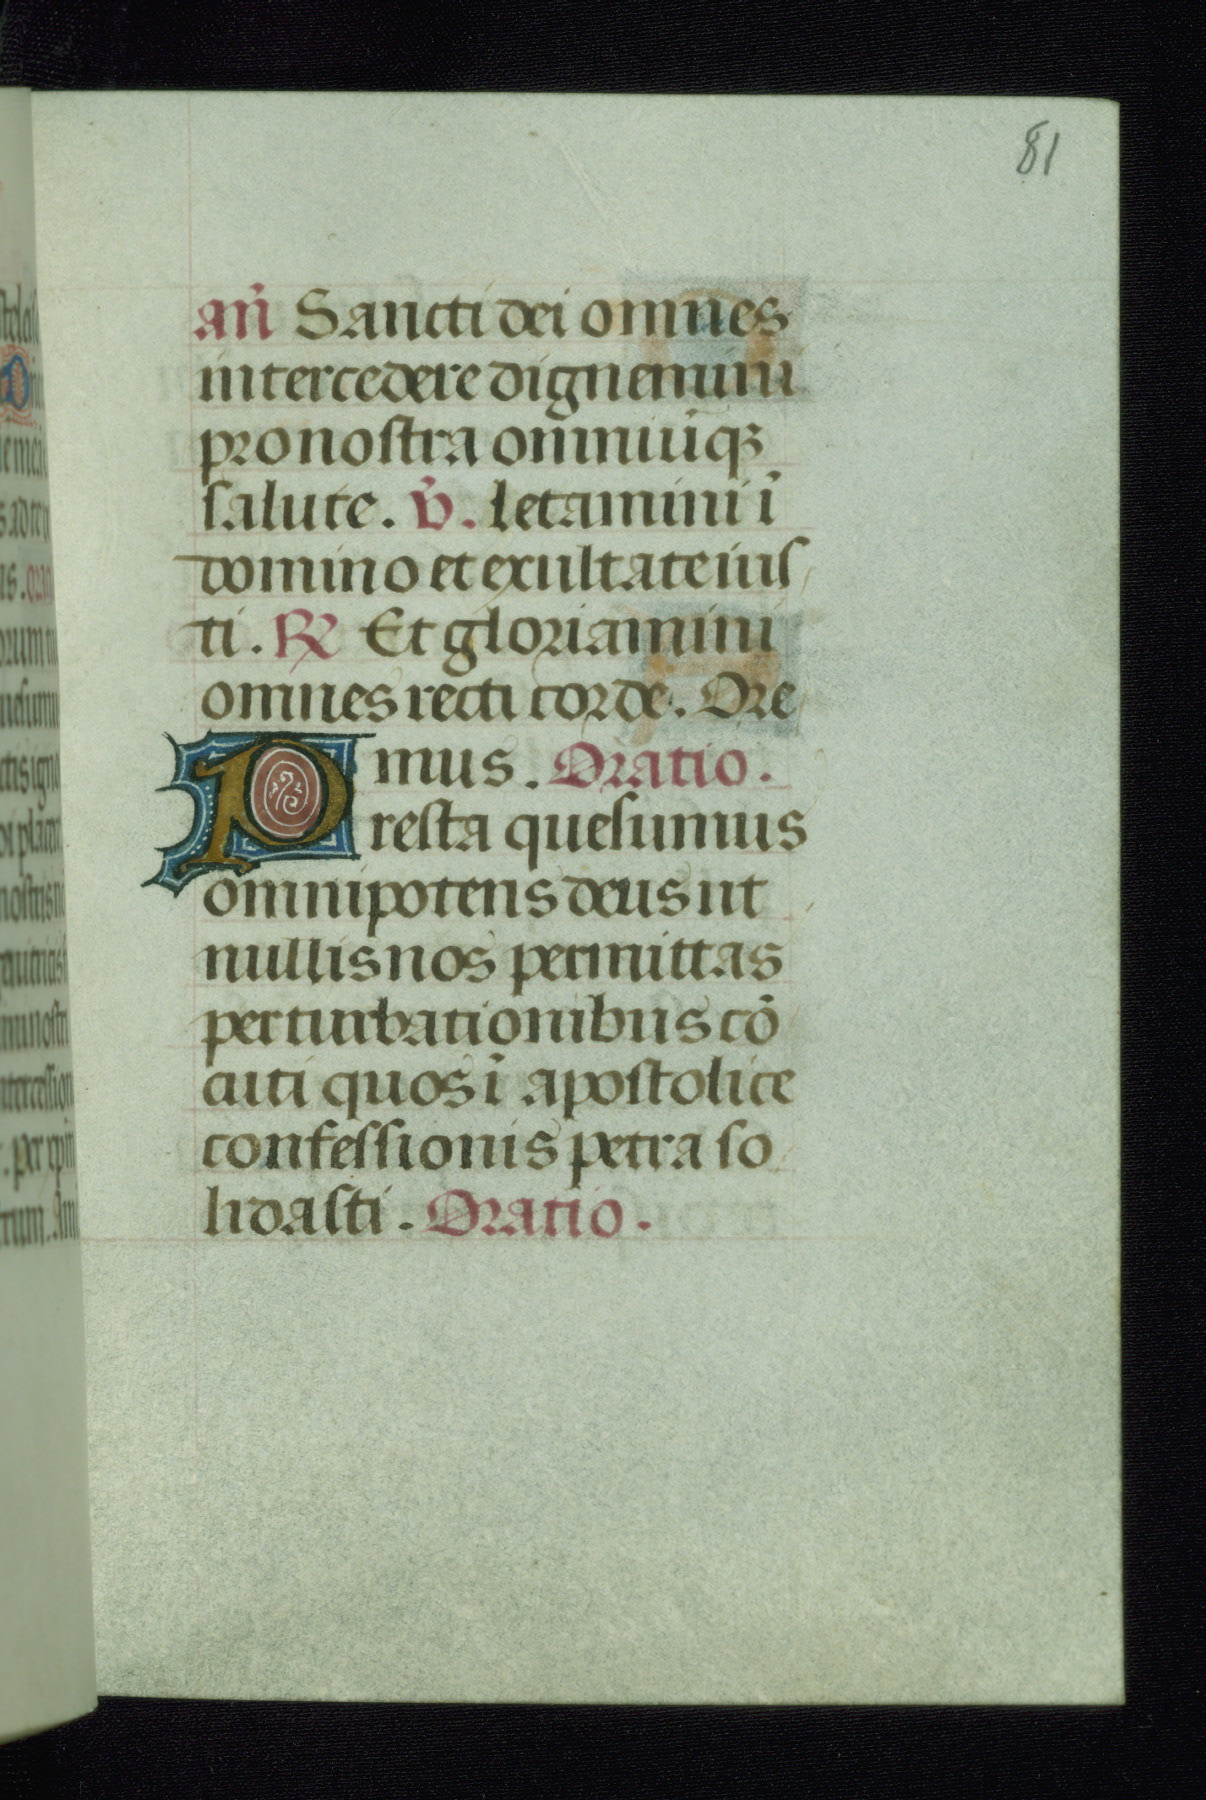 81
añ Sancti dei omnes
intercedere dignemini
pro nostra om̄niūq3
salute. v̄. letamini ī
domino et exultate ius
ti. R̷ Et gloriamini
omnes recti corde. Ore
mus. Oratio.
Presta quesumus
omnipotens deus ut
nullis nos permittas
perturbationibus cō
cuti quos ī apostolice
confessionis petra so
lidasti. Oratio.